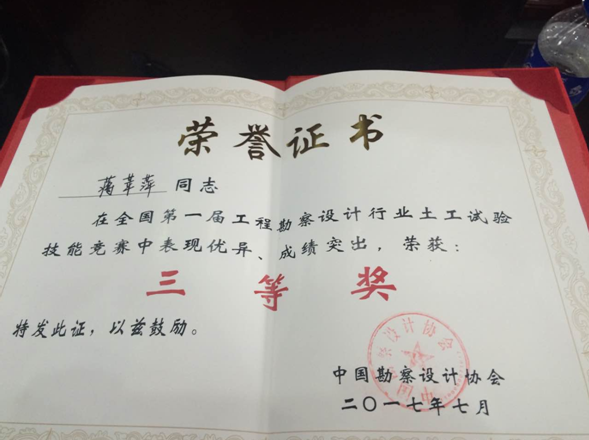 荣誉证书
蒋苹萍 同志
在全国第一届工程勘察设计行业土工试验
技能竞赛中表现优异、成绩突出，荣获：
三等奖
特发此证，以兹鼓励。
中国勘察设计协会
二〇一七年七月